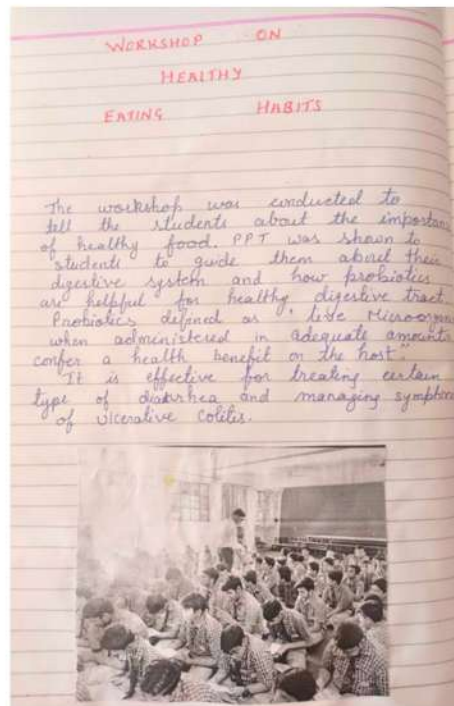 WORKSHOP ON
HEALTHY
EATING HABITS
The workshop was conducted to
tell the students about the importan
of healthy food. PPT was shown to
students to guide them about their
digestive system and how probiotics
are helpful for healthy digestive tract
Probiotics defined as "live Microorgan
when administered in adequate amounts
confer a health benefit on the host".
It is effective for treating certain
type of diatrhea and managing symptom
of ulcerative colitis.